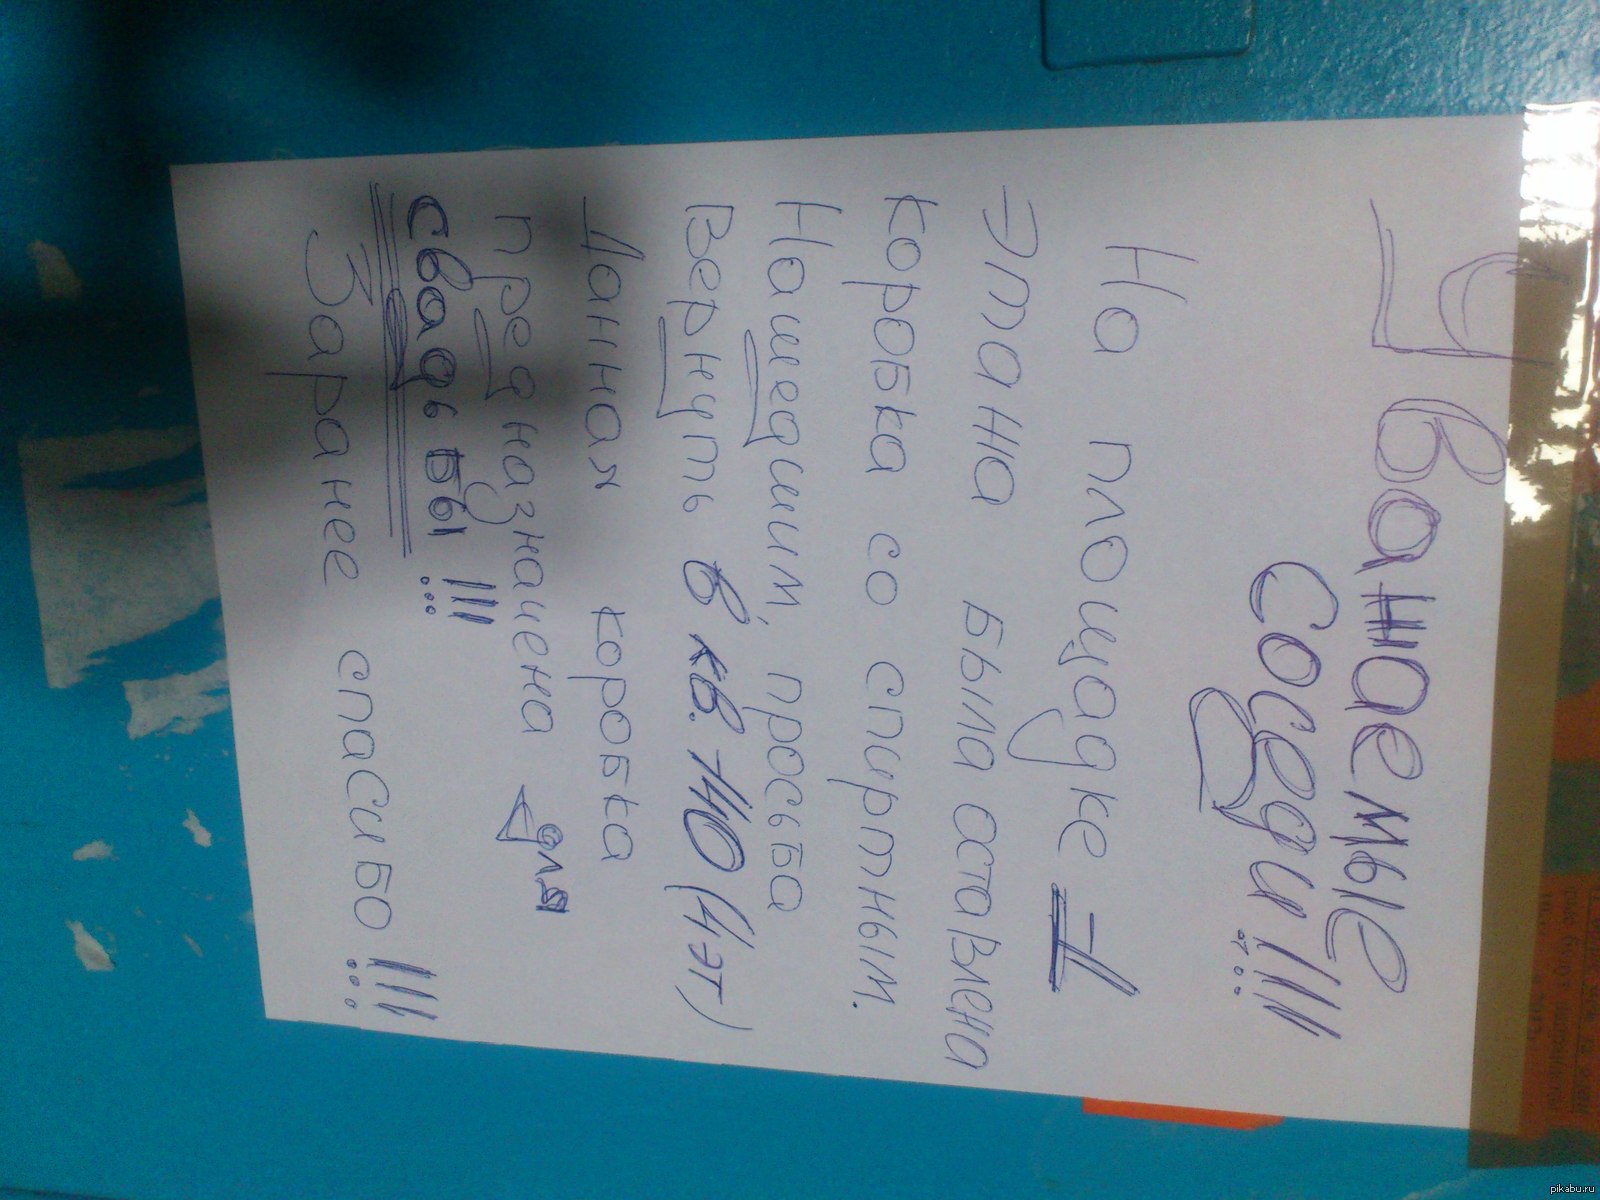 Уважаемые
Соседи!!!
На площадке 1
этажа была оставлена
коробка со спиртным.
Нашедшим, просьба
Вернуть в кв.
Данная коробка
предназначена для
свадьбы!!!
Заранее спасибо!!!
pikabu.ru